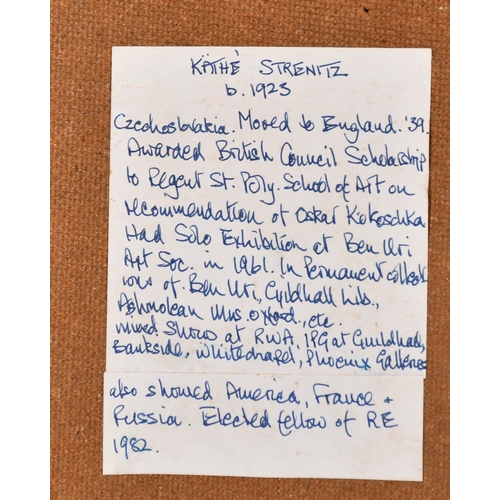 KÄTHÉ STRENITZ
b. 1923
Czechoslovakia. Moved to England. '39.
Awarded British Council Scholarship
to Regent St. Poly. School of Art on
recommendation of Oskar Kokoschka.
Had Solo Exhibition at Ben Uri
Art Soc. in 1961. In Permanent collect
ions of. Ben Uri, Guildhall Lib.,
Ashmolean Mus. Oxford, etc.
mixed shows at RWA. 1PG at Guildhall,
Bankside, Whitechapel, Phoenix Galleries
also showed America, France +
Russia. Elected fellow of RE
1982.